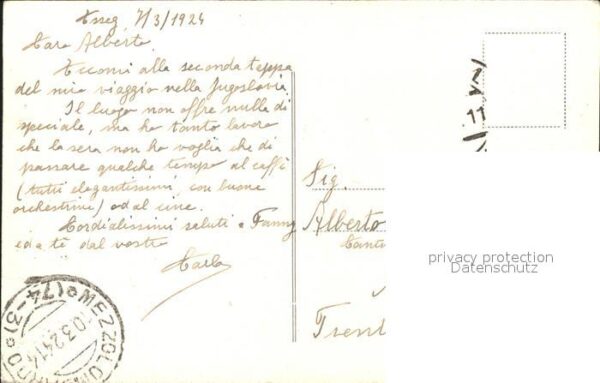 Esseg, 7/3/1924
Caro Alberto,
Eccomi alla seconda teppa
del mio viaggio nella Jugoslavia.
Il luogo non offre nulla di
speciale, ma ho tanto lavoro
che la sera non ho voglia che di
passare qualche tempo al caffè
(tutti elegantissimi con buone
orchestrine) od al cine.
Cordialissimi saluti a Fanny
ed a te dal vostro
Carlo
Sig.
Alberto
Trent
MEZZOLOM
(74-3)
10.3.24.14
privacy protection
Datenschutz